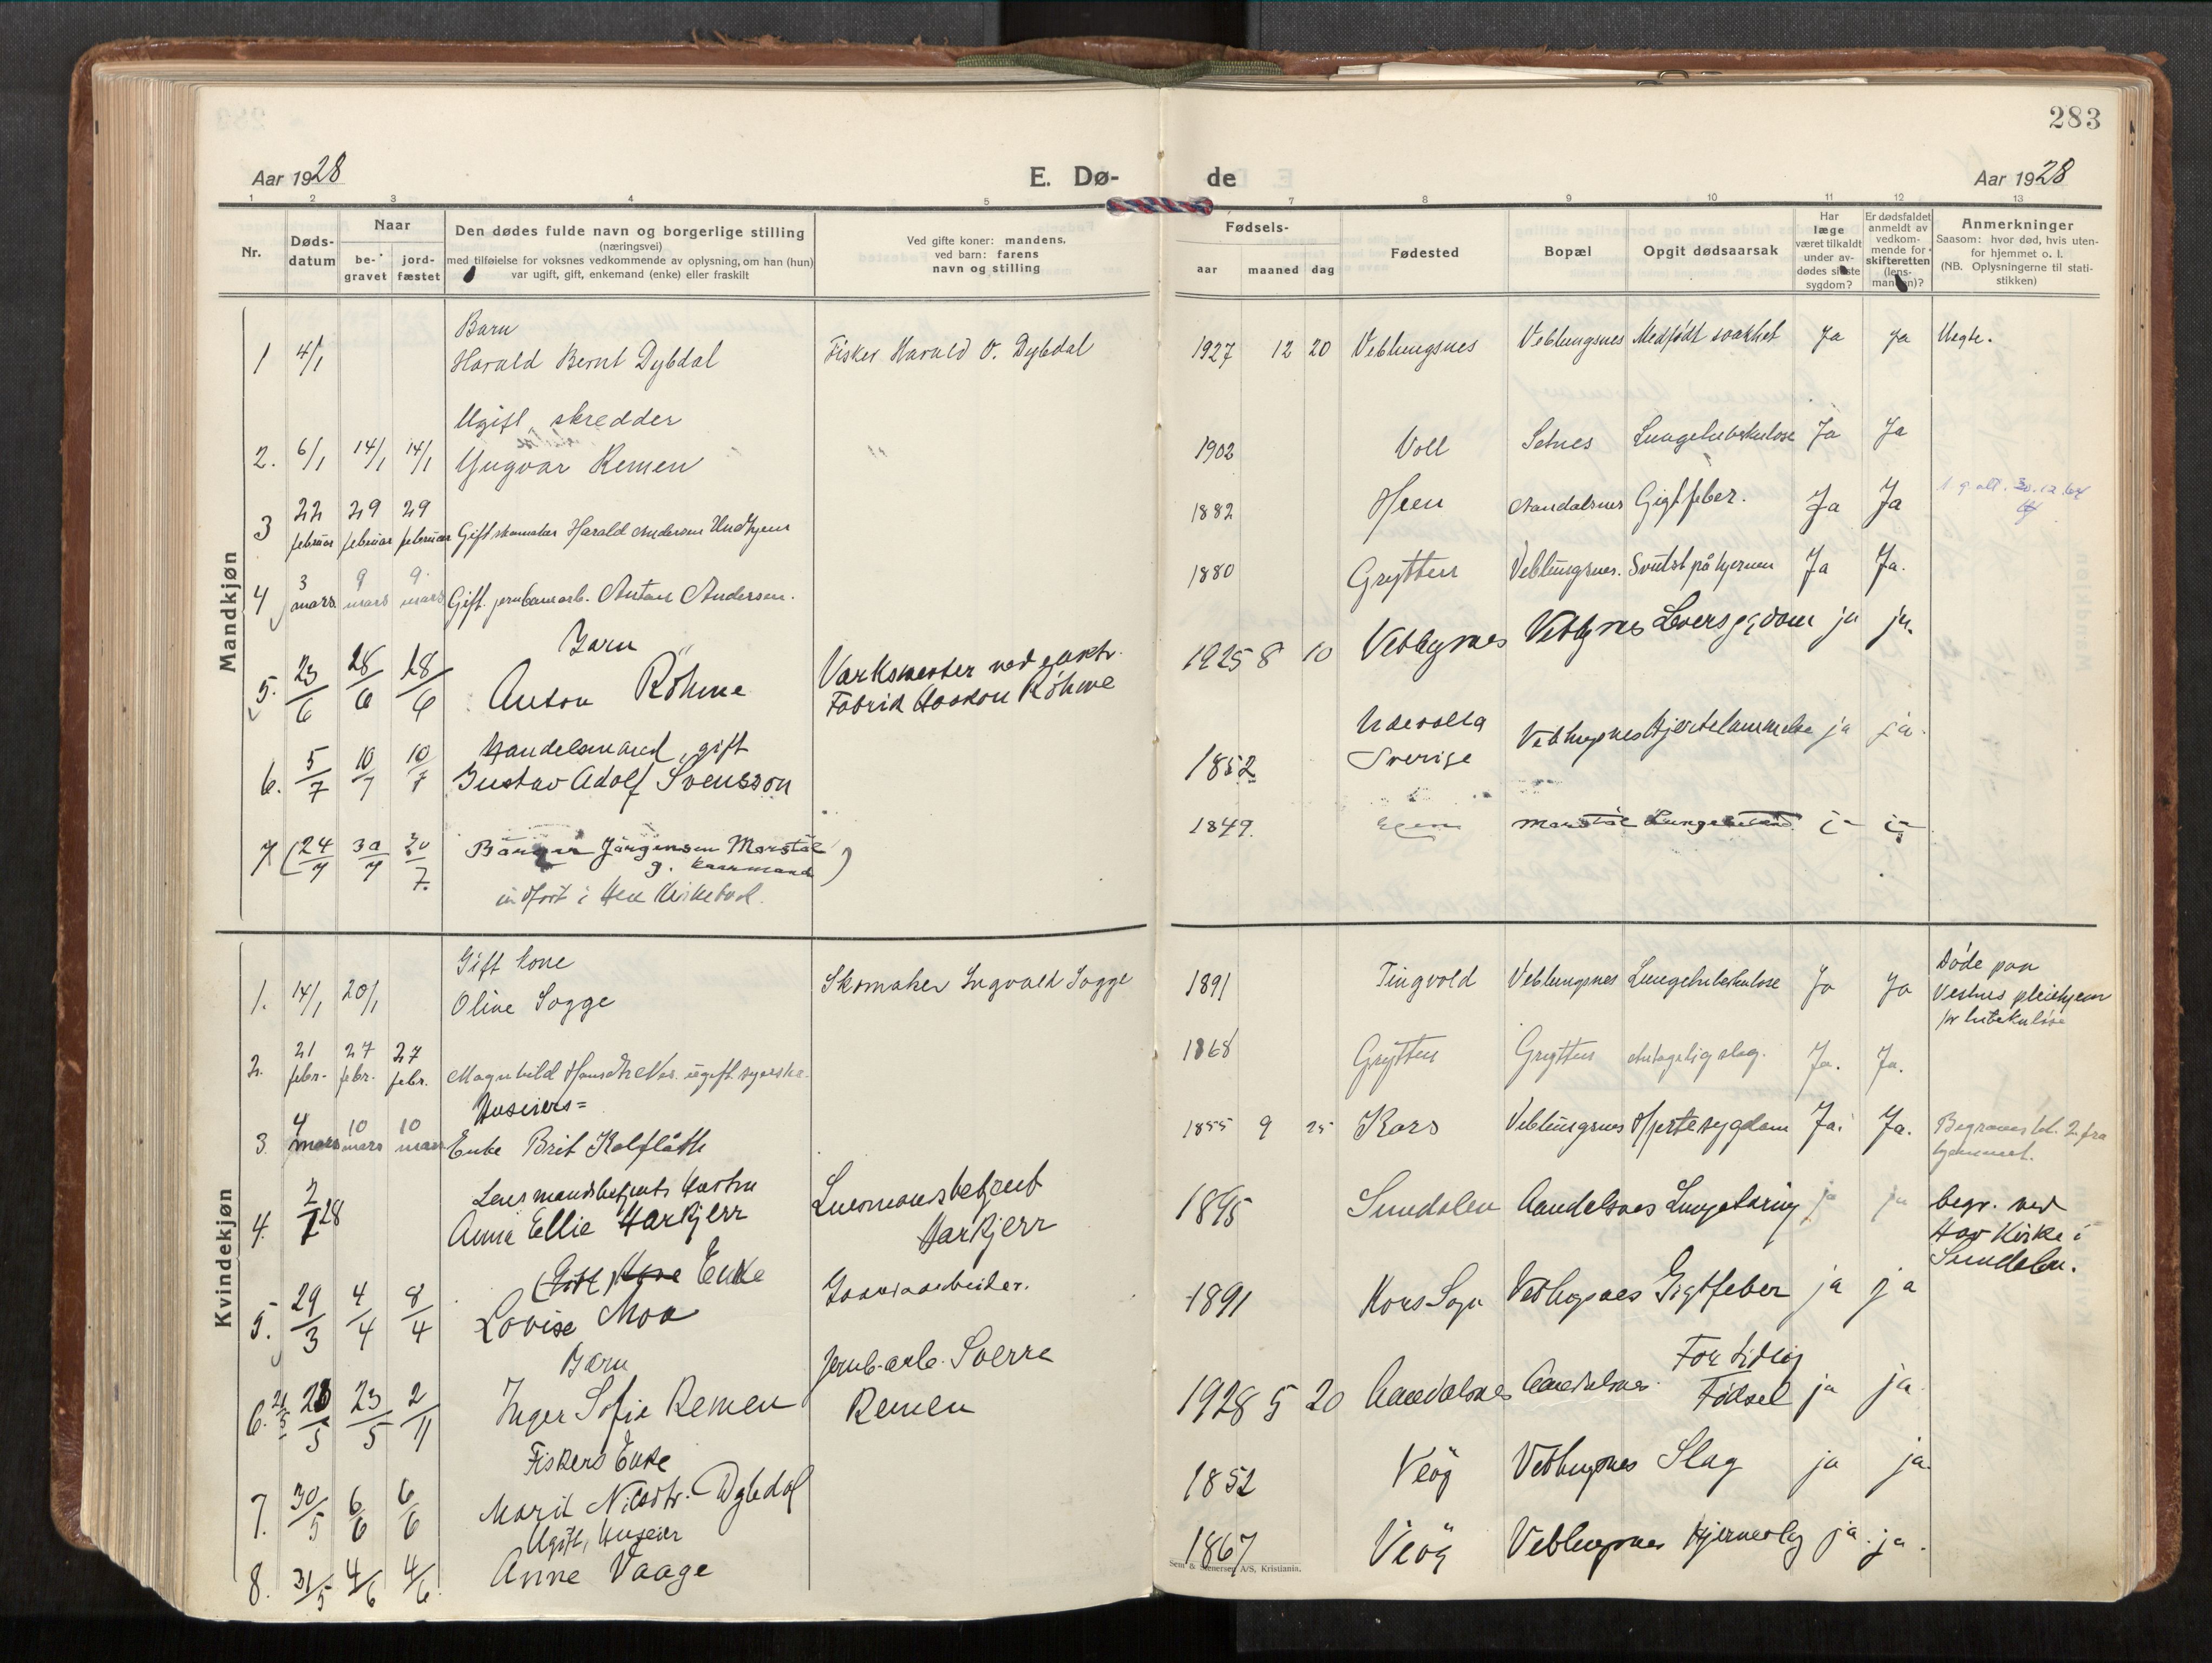 283
Aar 1928
E. Dø-
de
Aar 1928
1 2 3 4 5 7 8 9 10 11 12 13
Nr.
Døds-
datum
Naar
be-
gravet
jord-
fæstet
Den dødes fulde navn og borgerlige stilling
(næringsvei)
med tilføielse for voksnes vedkommende av oplysning, om han (hun)
var ugift, gift, enkemand (enke) eller fraskilt
Ved gifte koner: mandens,
ved barn: farens
navn og stilling
Fødsels-
aar maaned dag
Fødested
Bopæl
Opgit dødsaarsak
Har
læge
været tilkaldt
under av-
dødes sidste
sygdom?
Er dødsfaldet
anmeldt av
vedkom-
mende for
skifteretten
(lens-
manden)?
Anmerkninger
Saasom: hvor død, hvis uten-
for hjemmet o. l.
(NB. Oplysningerne til stati-
stikken)
Mandkjøn
Barn
1 4/1 Harald Bernt Dybdal Fisker Harald O. Dybdal 1927 12 20 Veblungsnes Veblungsnes Medfødt svakhet Ja Ja Uegte.
Ugift, skredder
2. 6/1 14/1 14/1 Yngvar Remen 1902 Voll Setnes Lungetuberkulose Ja Ja
3 22 februar 29 februar 29 februar Gift skomaker Harald Andersen Undhjem 1882 Heen Aandalsnes Gigtfeber. Ja Ja
4 3 mars 9 mars 9. mars Gift. jernbanearb. Antone Andersen. 1880 Grytten Veblungsnes. Svulst på hjernen Ja Ja.
Barn
5. 23/6 28/6 28/6 Anton Röhme Varksmester ved
Fabrik Haakon Röhme 1925 8 10 Veblungsnes Veblungsnes Leversygdom ja ja.
Handelsmand, gift
6. 5/7 10/7 10/7 Gustav Adolf Svensson 1852 Udevalla
Sverige Veblungsnes Hjertelammelse ja ja.
7 (24/7 30/7 30/7. Jörgensen Marstål
g. kaarmand)
indført i Hen Kirkebok. 1849. Marstål ja ja
Kvindekjøn
Gift kone
1. 14/1 20/1 Oline Sogge Skomaker Ingvald Sogge 1891 Tingvold Veblungsnes Lungetuberkulose Ja Ja Døde paa
Vestnes pleiehjem
for tuberkuløse
2. 21 febr. 27 febr. 27 febr. Magnhild Hansdtr Nes. ugift syerske. 1868 Grytten Grytten Antagelig slag. Ja. Ja.
Huseiers=
3. 4 mars 10 mars 10 mars Enke Brit Kalflåth 1855 9 25 Kors Veblungsnes Hjertesygdom Ja. Ja. Begraves kl. 2 fra
hjemmet.
Lensmandsbetjents hustru
4. 2/7 28 Anna Ellie Harkjerr Lensmandsbetjent
Harkjerr 1895 Sundalen Aandalsnes Lungetæring ja ja begr. ved
Hov Kirke i
Sundalen.
(Gift) Kone Enke
5. 29/3 4/4 8/4 Lovise Moa 1891 Kors Sogn Veblungsnes Gigtfeber ja ja
Barn
6. 21/5 23/5 2/11 Inger Sofie Remen Jernb-arb. Sverre
Remen 1928 5 20 Aandalsnes Aandalsnes. For tidlig
Fødsel ja ja.
Fiskers Enke
7. 30/5 6/6 6/6 Marit Nilsdtr. Dybdal 1852 Veöy Veblungsnes Slag ja ja.
Ugift, huseier
8. 31/5 4/6 4/6. Anne Vaage 1867 Veöy Veblungsnes Hjerneslag ja. ja.
Sem & Stenersen A/S, Kristiania.